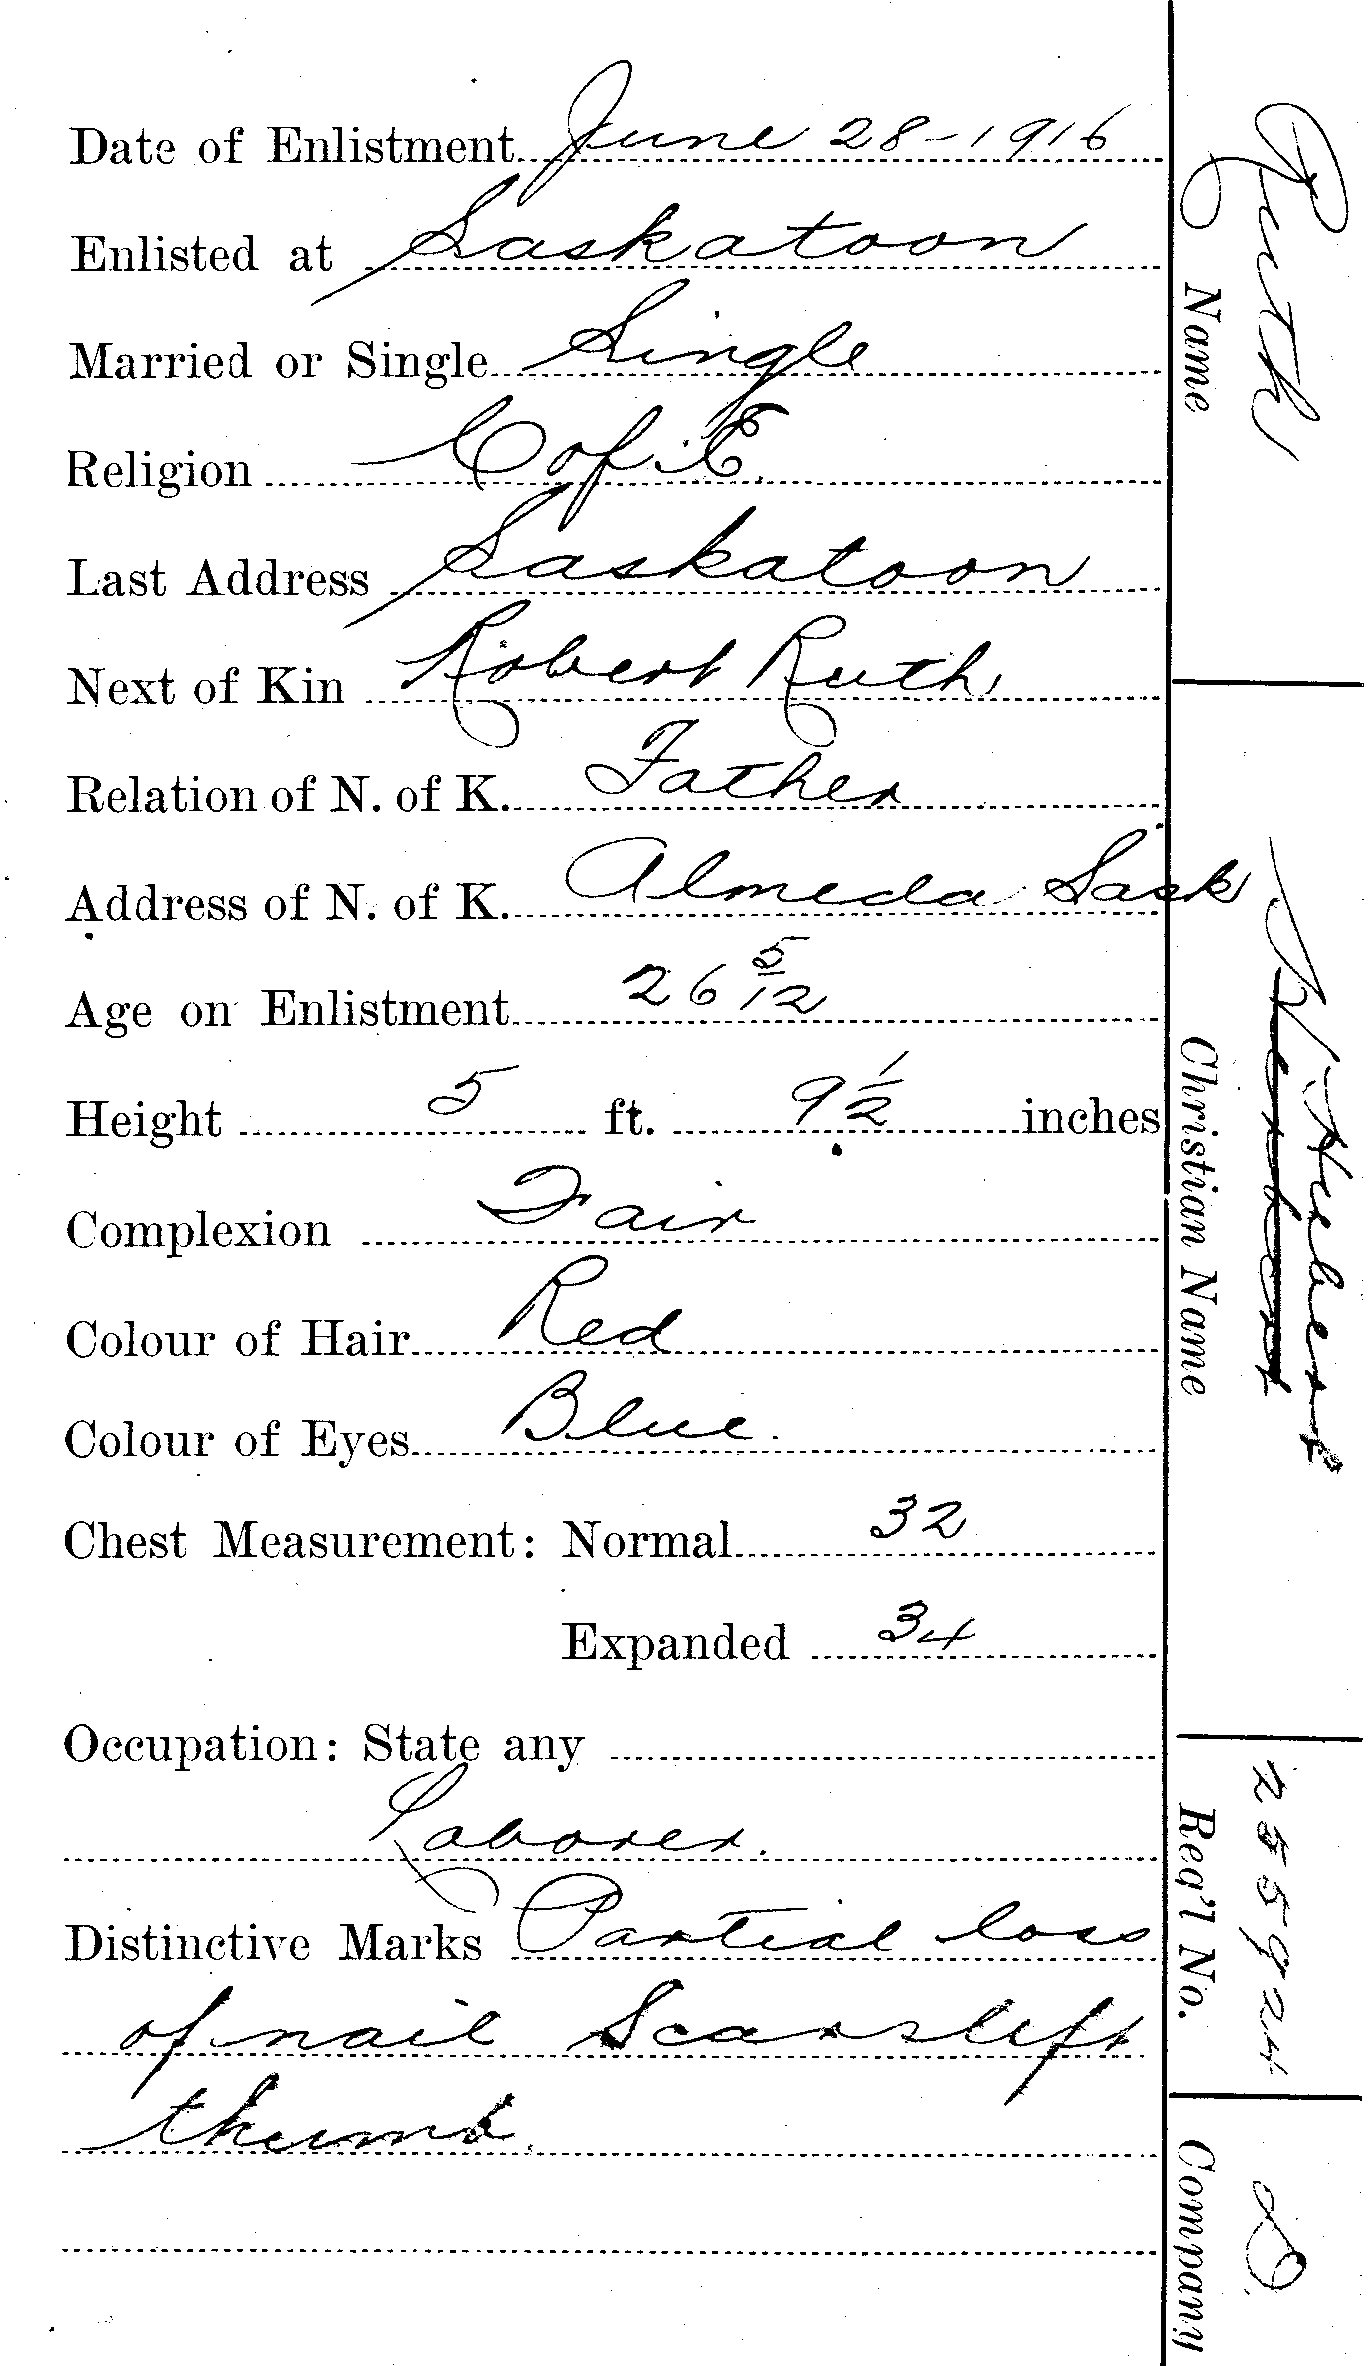 Date of Enlistment June 28-1916
Enlisted at Saskatoon
Married or Single Single
Religion C of E.
Last Address Saskatoon
Next of Kin Robert Ruth
Relation of N. of K. Father
Address of N. of K. Almeda Sask
Age on Enlistment 26 5/12
Height 5 ft. 9 1/2 inches
Complexion Fair
Colour of Hair Red
Colour of Eyes Blue.
Chest Measurement: Normal 32
Expanded 34
Occupation: State any
Laborer.
Distinctive Marks Partial loss
of nail Scars left
thumb.
Ruth
Name
Herbert
Christian Name
255924
Reg'l No.
D.
Company